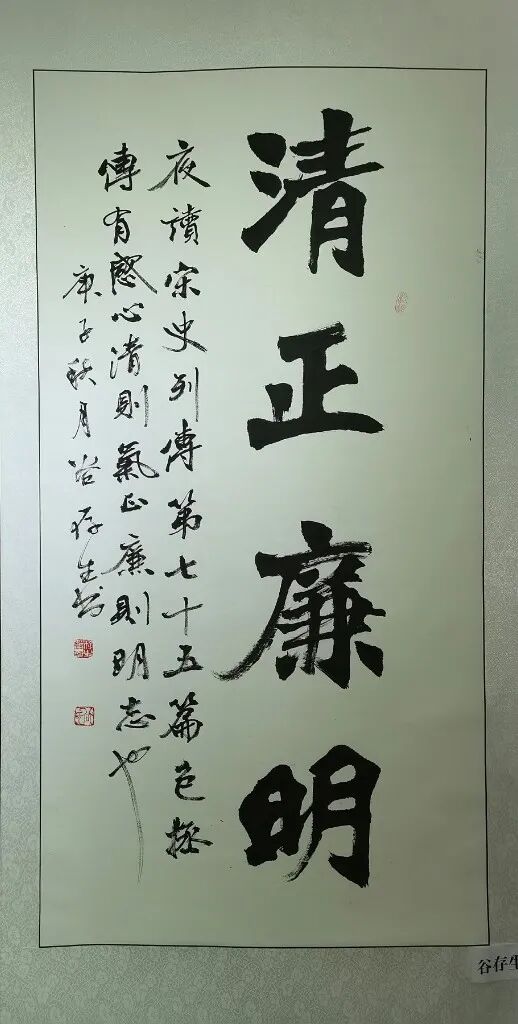 清正廉明
夜讀宋史列傳第七十五篇包拯
傳有感心清則氣正廉則明志也
庚子秋月谷存生书
谷存生